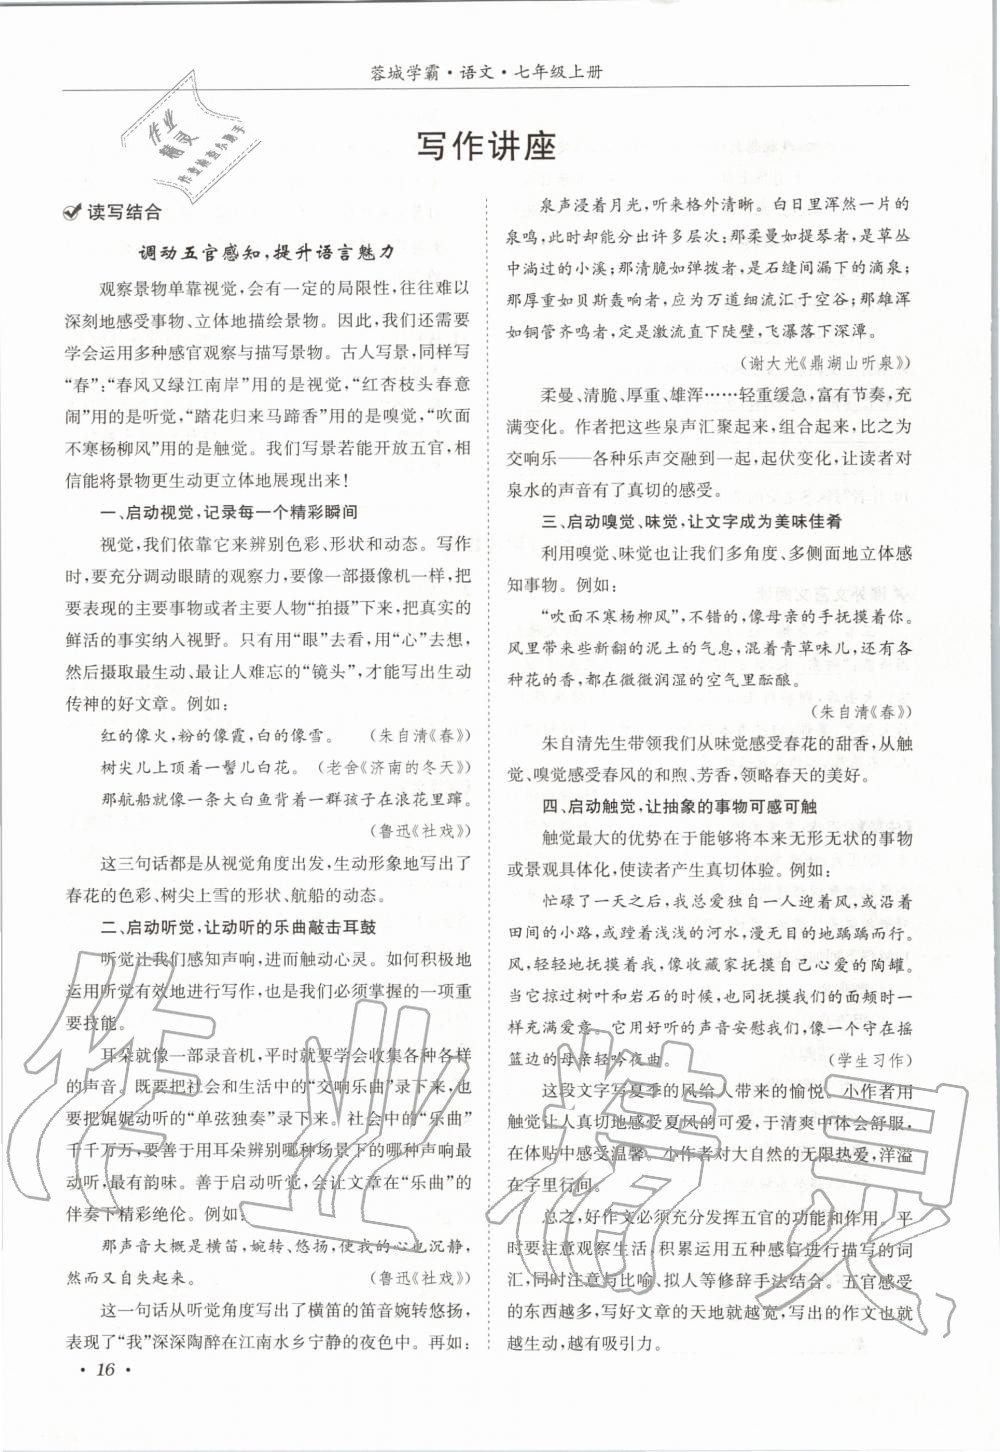 蓉城学霸·语文·七年级上册
写作讲座
读写结合
调动五官感知，提升语言魅力
观察景物单靠视觉，会有一定的局限性，往往难以
深刻地感受事物、立体地描绘景物。因此，我们还需要
学会运用多种感官观察与描写景物。古人写景，同样写
“春”：“春风又绿江南岸”用的是视觉，“红杏枝头春意
闹”用的是听觉，“踏花归来马蹄香”用的是嗅觉，“吹面
不寒杨柳风”用的是触觉。我们写景若能开放五官，相
信能将景物更生动更立体地展现出来！
一、启动视觉，记录每一个精彩瞬间
视觉，我们依靠它来辨别色彩、形状和动态。写作
时，要充分调动眼睛的观察力，要像一部摄像机一样，把
要表现的主要事物或者主要人物“拍摄”下来，把真实的
鲜活的事实纳入视野。只有用“眼”去看，用“心”去想，
然后摄取最生动、最让人难忘的“镜头”，才能写出生动
传神的好文章。例如：
红的像火，粉的像霞，白的像雪。（朱自清《春》）
树尖儿上顶着一髻儿白花。（老舍《济南的冬天》）
那航船就像一条大白鱼背着一群孩子在浪花里蹿。
（鲁迅《社戏》）
这三句话都是从视觉角度出发，生动形象地写出了
春花的色彩、树尖上雪的形状、航船的动态。
二、启动听觉，让动听的乐曲敲击耳鼓
听觉让我们感知声响，进而触动心灵。如何积极地
运用听觉有效地进行写作，也是我们必须掌握的一项重
要技能。
耳朵就像一部录音机，平时就要学会收集各种各样
的声音。既要把社会和生活中的“交响乐曲”录下来，也
要把娓娓动听的“单弦独奏”录下来。社会中的“乐曲”
千千万万，要善于用耳朵辨别哪种场景下的哪种声响最
动听，最有韵味。善于启动听觉，会让文章在“乐曲”的
伴奏下精彩绝伦。例如：
那声音大概是横笛，婉转、悠扬，使我的心也沉静，
然而又自失起来。（鲁迅《社戏》）
这一句话从听觉角度写出了横笛的笛音婉转悠扬，
表现了“我”深深陶醉在江南水乡宁静的夜色中。再如：
泉声浸着月光，听来格外清晰。白日里浑然一片的
泉鸣，此时却能分出许多层次：那柔曼如提琴者，是草丛
中淌过的小溪；那清脆如弹拨者，是石缝间漏下的滴泉；
那厚重如贝斯轰响者，应为万道细流汇于空谷；那雄浑
如铜管齐鸣者，定是激流直下陡壁，飞瀑落下深潭。
（谢大光《鼎湖山听泉》）
柔曼、清脆、厚重、雄浑……轻重缓急，富有节奏，充
满变化。作者把这些泉声汇聚起来，组合起来，比之为
交响乐——各种乐声交融到一起，起伏变化，让读者对
泉水的声音有了真切的感受。
三、启动嗅觉、味觉，让文字成为美味佳肴
利用嗅觉、味觉也让我们多角度、多侧面地立体感
知事物。例如：
“吹面不寒杨柳风”，不错的，像母亲的手抚摸着你。
风里带来些新翻的泥土的气息，混着青草味儿，还有各
种花的香，都在微微润湿的空气里酝酿。
（朱自清《春》）
朱自清先生带领我们从味觉感受春花的甜香，从触
觉、嗅觉感受春风的和煦、芳香，领略春天的美好。
四、启动触觉，让抽象的事物可感可触
触觉最大的优势在于能够将本来无形无状的事物
或景观具体化，使读者产生真切体验。例如：
忙碌了一天之后，我总爱独自一人迎着风，或沿着
田间的小路，或蹚着浅浅的河水，漫无目的地踽踽而行。
风，轻轻地抚摸着我，像收藏家抚摸自己心爱的陶罐。
当它掠过树叶和岩石的时候，也同抚摸我们的面颊时一
样充满爱意。它用好听的声音安慰我们，像一个守在摇
篮边的母亲轻吟夜曲。（学生习作）
这段文字写夏季的风给人带来的愉悦。小作者用
触觉让人真切地感受夏风的可爱，于清爽中体会舒服，
在体贴中感受温馨。小作者对大自然的无限热爱，洋溢
在字里行间。
总之，好作文必须充分发挥五官的功能和作用。平
时要注意观察生活，积累运用五种感官进行描写的词
汇，同时注意与比喻、拟人等修辞手法结合。五官感受
的东西越多，写好文章的天地就越宽，写出的作文也就
越生动，越有吸引力。
·16·
作业
精灵
作业检查小助手
作业精灵